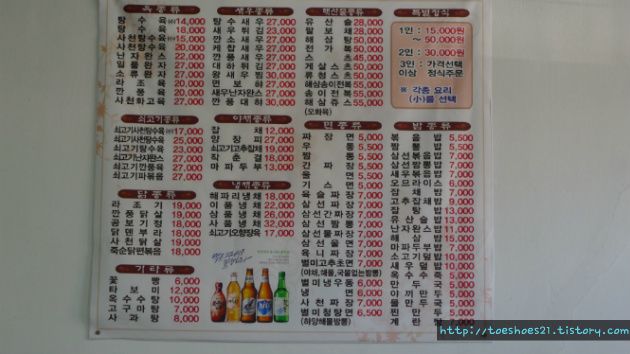 육종류
탕수육 (小)14,000
탕수육 18,000
사천탕수육 (小)15,000
사천탕수육 20,000
난자완스 22,000
일품완자 27,000
소류완자 27,000
라조육 20,000
깐풍육 20,000
사천화고육 27,000
새우종류
탕수새우 27,000
새우튀김 23,000
깐소새우 27,000
케찹새우 27,000
깐풍새우 27,000
대하튀김 27,000
왕새우찜 30,000
면보하 27,000
새우난자완스 27,000
깐풍대하 30,000
해산물종류
유산슬 28,000
팔보채 28,000
해삼탕
전가복
류삼스
게살스츠
류청스츠
해삼송이전복
송이전복
해삼쥬스
(오화육)
특별정식
1인 : 15,000원
~ 50,000원
2인 : 30,000원
3인 : 가격선택
이상 정식주문
※ 각종 요리
(小)를 선택
쇠고기종류
쇠고기사천탕수육 (小)17,000
쇠고기사천탕수육 25,000
쇠고기탕수육 23,000
쇠고기난자완스 27,000
쇠고기깐풍육 27,000
쇠고기파볶음 27,000
야채종류
잡채 12,000
양장피 27,000
쇠고기고추잡채 19,000
작춘결 18,000
마파두부 13,000
닭종류
라조기 19,000
깐풍닭살 19,000
궁보기정 18,000
닭덴뿌라 18,000
사천닭살 19,000
죽순닭편볶음 18,000
냉채종류
해파리냉채 18,000
이품냉채 22,000
삼품냉채 26,000
사품냉채 32,000
쇠고기오향장육 17,000
기타류
꽃빵 6,000
타보미 12,000
옥수수탕 10,000
고구마탕 7,000
사과탕 8,000
면종류
짜장면 5,500
우동 5,500
짬뽕 5,500
간짜장 5,500
울면 5,500
기스면 5,500
유슬짜장
삼선짜장
삼선간짜장
삼선짬뽕
삼선우동
삼선물짜장
삼선울면
유니짜장
별미고추초면
(야채, 해물, 국물없는짬뽕)
별미냉우동 6,000
냉면 6,000
사천짜장 7,000
별미청탕면 6,500
(하얀해물짬뽕)
밥종류
볶음밥 5,500
짬뽕밥 5,500
삼선볶음밥 7,000
삼선짬뽕밥 7,000
새우볶음밥 7,000
오므라이스 6,000
잡채밥 6,000
고추잡채밥 7,000
잡탕밥 13,000
유산슬밥 13,000
난자완스밥 11,000
해삼탕밥 15,000
마파두부밥 7,000
소고기덮밥 10,000
새우덮밥 10,000
옥수수죽 5,000
만두국 5,500
http://toeshoes21.tistory.com